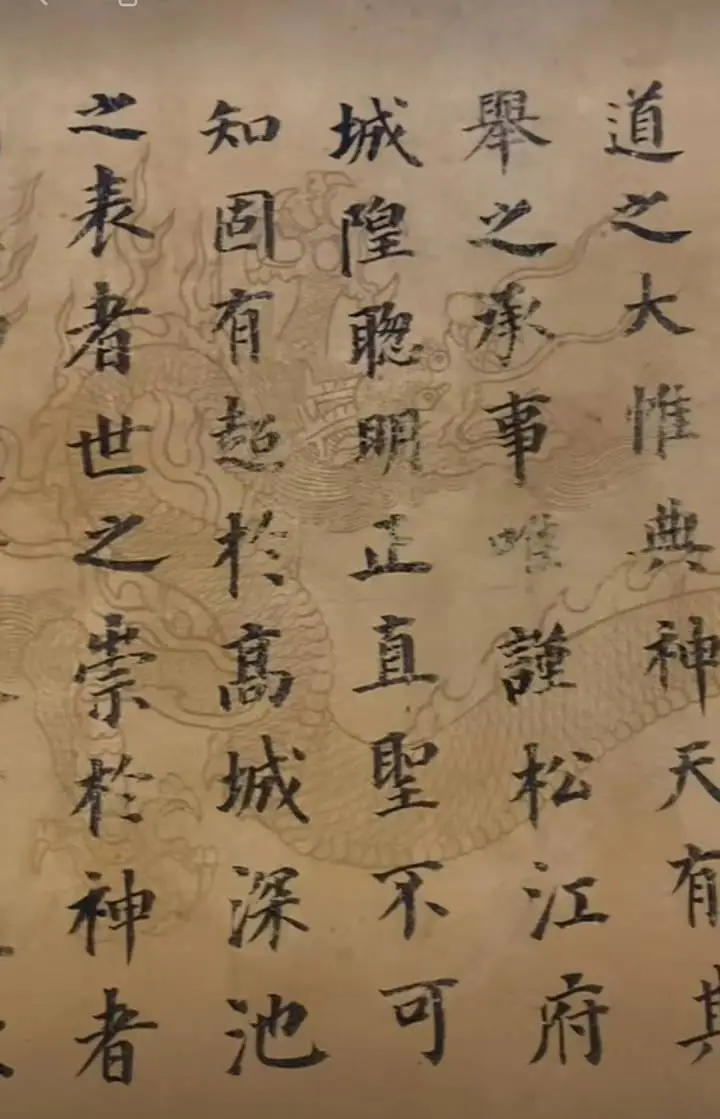 道之大惟典神天有其
舉之承事唯謹松江府
城隍聰明正直聖不可
知固有超於高城深池
之表者世之崇於神者